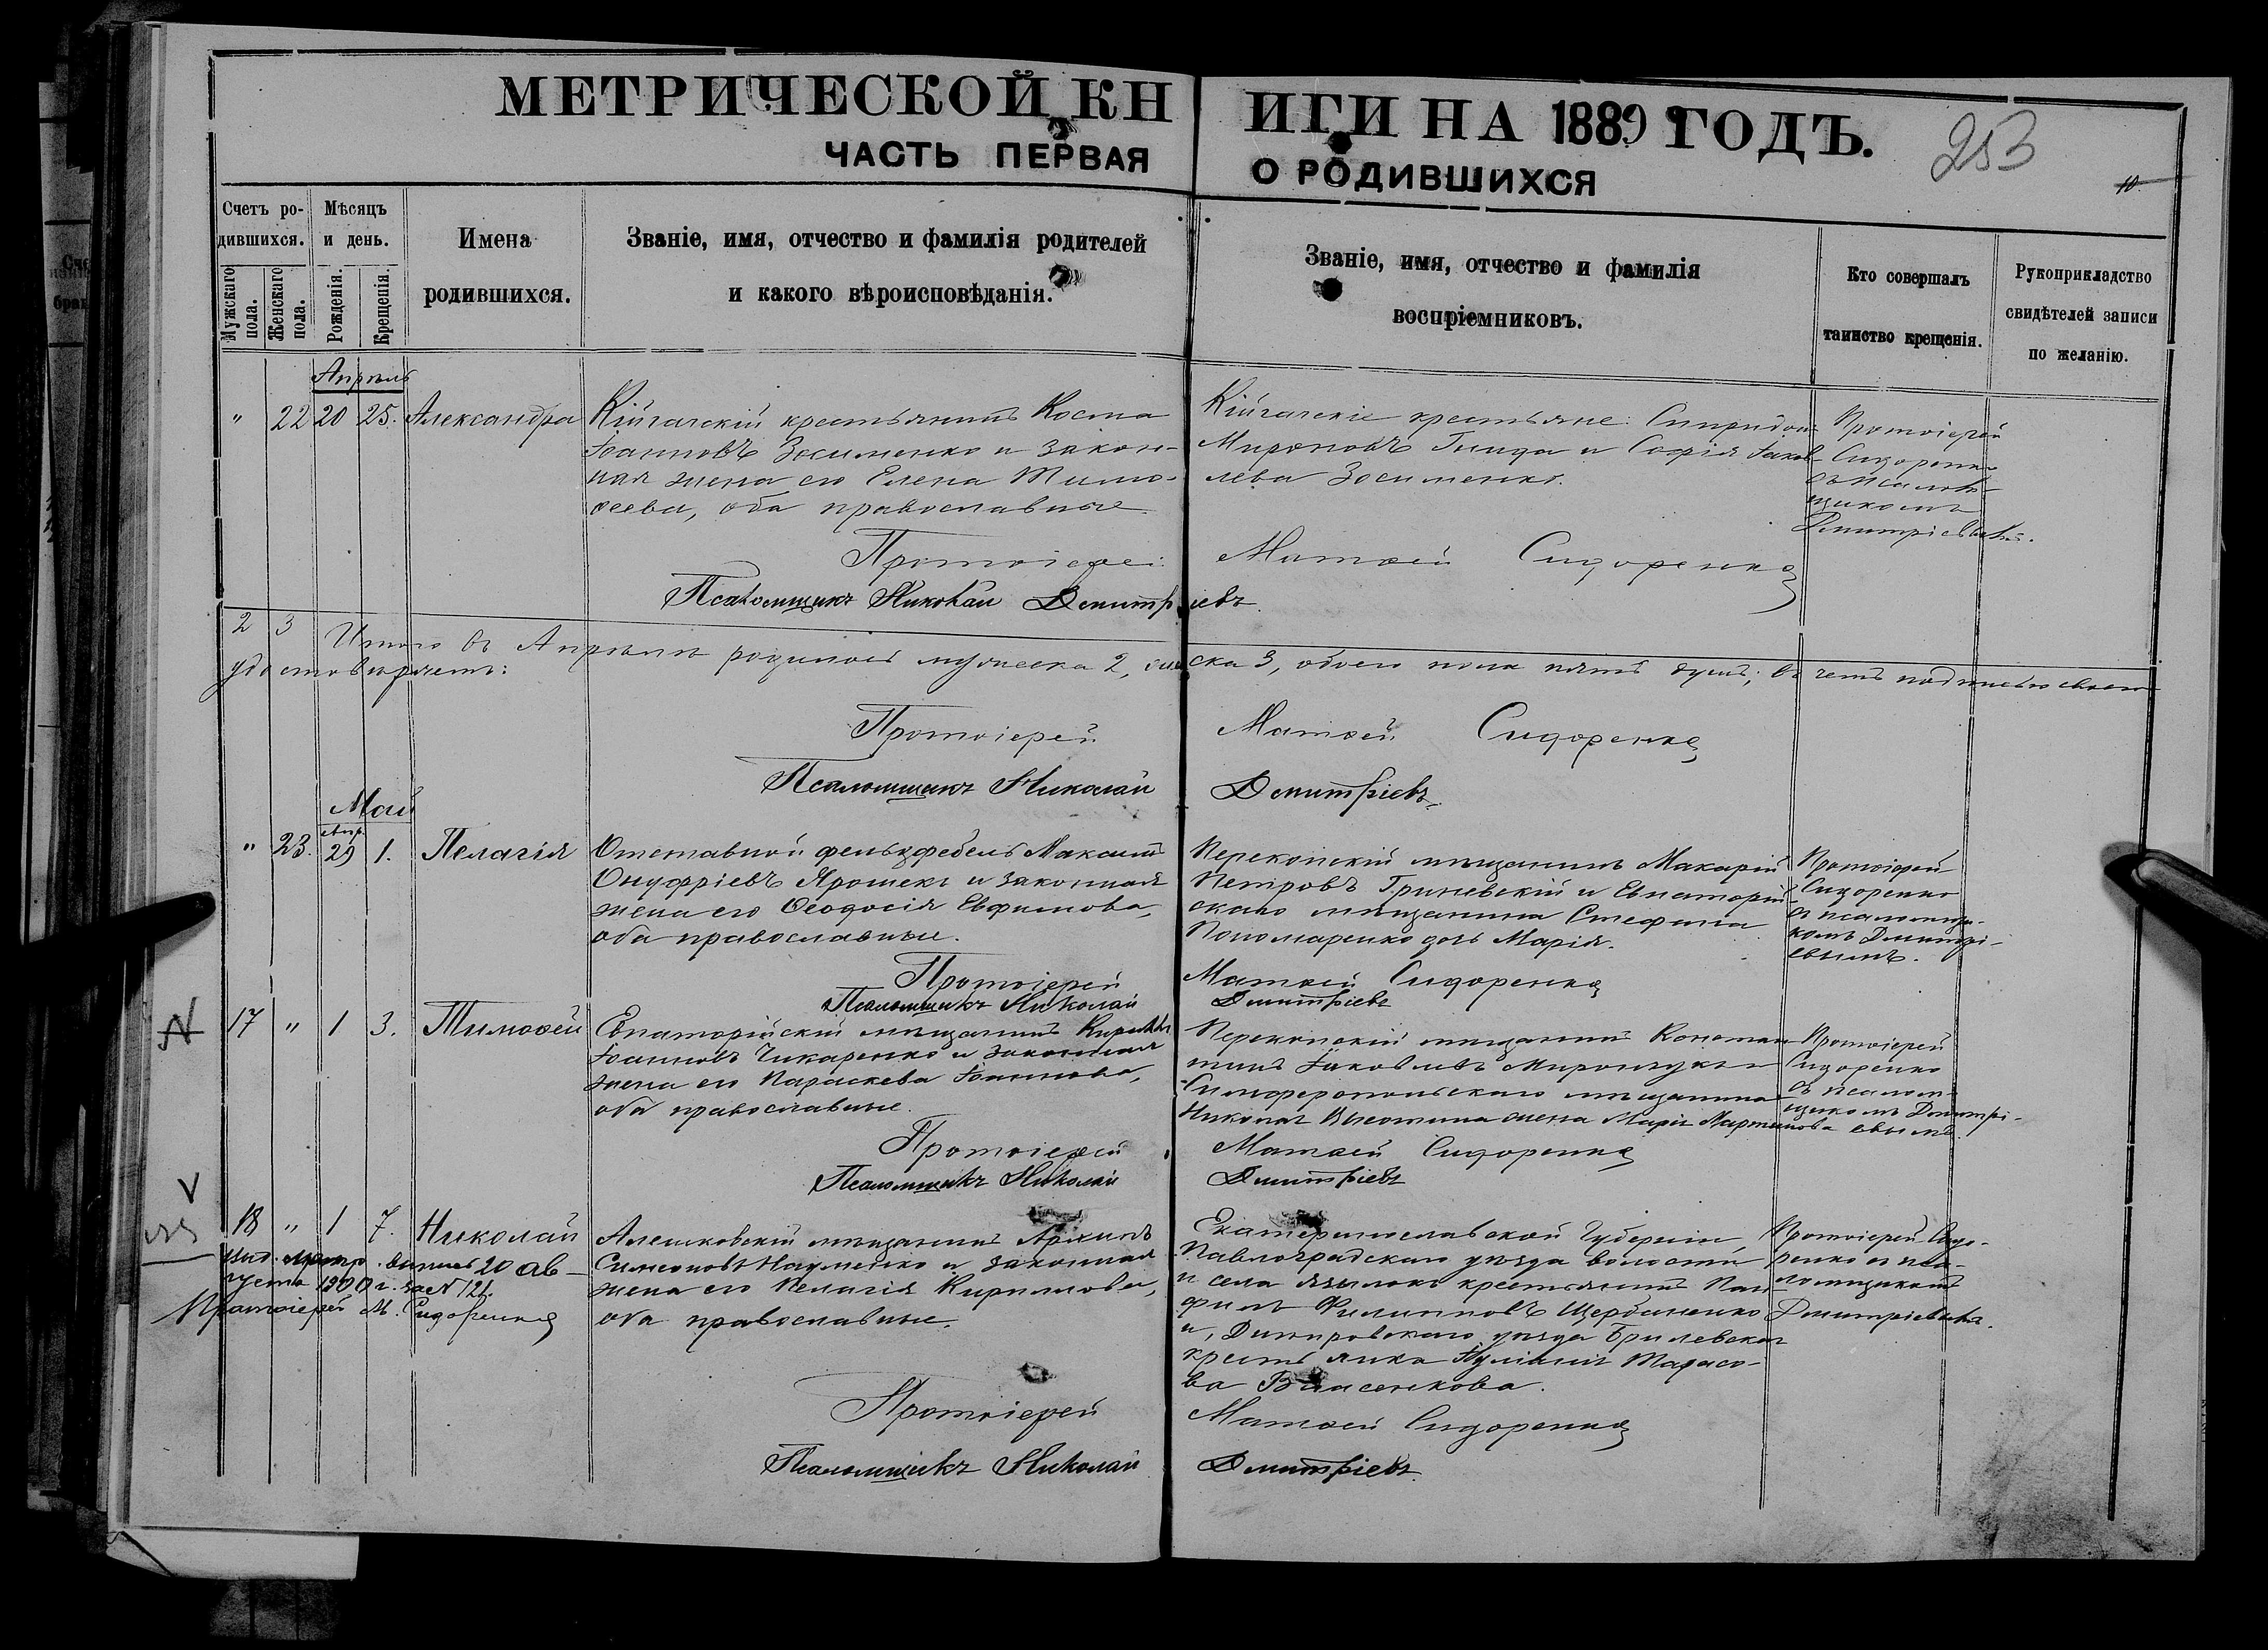 МЕТРИЧЕСКОЙ КНИГИ НА 1889 ГОДЪ.
253
10
ЧАСТЬ ПЕРВАЯ О РОДИВШИХСЯ
Счетъ ро-
дившихся.
Мужскаго
пола.
Женскаго
пола.
Мѣсяцъ
и день.
Рожденія.
Крещенія.
Имена
родившихся.
Званіе, имя, отчество и фамилія родителей
и какого вѣроисповѣданія.
Званіе, имя, отчество и фамилія
воспріемниковъ.
Кто совершалъ
таинство крещенія.
Рукоприкладство
свидѣтелей записи
по желанію.
Апрѣль
" 22 20 25. Александра
Кійгатскій крестьянинъ Косма
Іоанновъ Зосименко и закон-
ная жена его Елена Тимо-
ѳеева, оба православные
Кійгатскіе крестьяне: Спиридонъ
Мироновъ Гнида и Софія Іаков-
лева Зосименко.
Протоіерей
Сидоренко
съ псалом-
щикомъ
Дмитріевымъ.
Протоіерей Матѳей Сидоренко
Псаломщикъ Николай Дмитріевъ.
2 3 Итого въ Апрѣлѣ родилось мужеска 2, женска 3, обоего пола пять душъ; въ чемъ подписью своею
удостовѣряемъ:
Протоіерей Матѳей Сидоренко
Псаломщикъ Николай Дмитріевъ.
Май
апр.
" 23. 29 1. Пелагія
Отставной фельдфебель Максимъ
Онуфріевъ Ярошекъ и законная
жена его Ѳеодосія Евфимова,
оба православные.
Перекопскій мѣщанинъ Макарій
Петровъ Гриневскій и Евпаторій-
скаго мѣщанина Стефана
Пономаренко дочь Марія.
Протоіерей
Сидоренко
съ псаломщи-
комъ Дмитрі-
евымъ.
Протоіерей Матѳей Сидоренко
Псаломщикъ Николай Дмитріевъ
17 " 1 3. Тимоѳей
Евпаторійскій мѣщанинъ Кириллъ
Іоанновъ Чикаренко и законная
жена его Параскева Іоаннова,
оба православные.
Перекопскій мѣщанинъ Констан-
тинъ Іаковлевъ Мирончукъ и
Симферопольскаго мѣщанина
Николая жена Марія Мартинова
Протоіерей
Сидоренко
съ псалом-
щикомъ Дмитрі-
евымъ.
Протоіерей Матѳей Сидоренко
Псаломщикъ Николай Дмитріевъ
V
18 " 1 7. Николай
Выд. метр. выпись 20 ав-
густа 1900 г. за № 121.
Протоіерей М. Сидоренко
Алешковскій мѣщанинъ Архипъ
Симеоновъ Науменко и законная
жена его Пелагія Кириллова,
оба православные.
Екатеринославской Губерніи,
Павлоградскаго уѣзда волости
и села крестьянинъ Пан-
филъ Филипповъ Щербиненко
и, Днѣпровскаго уѣзда Брилевская
крестьянка Іуліанія Тарасо-
ва
Протоіерей Сидо-
ренко съ пса-
ломщикомъ
Дмитріевымъ.
Протоіерей Матѳей Сидоренко
Псаломщикъ Николай Дмитріевъ.